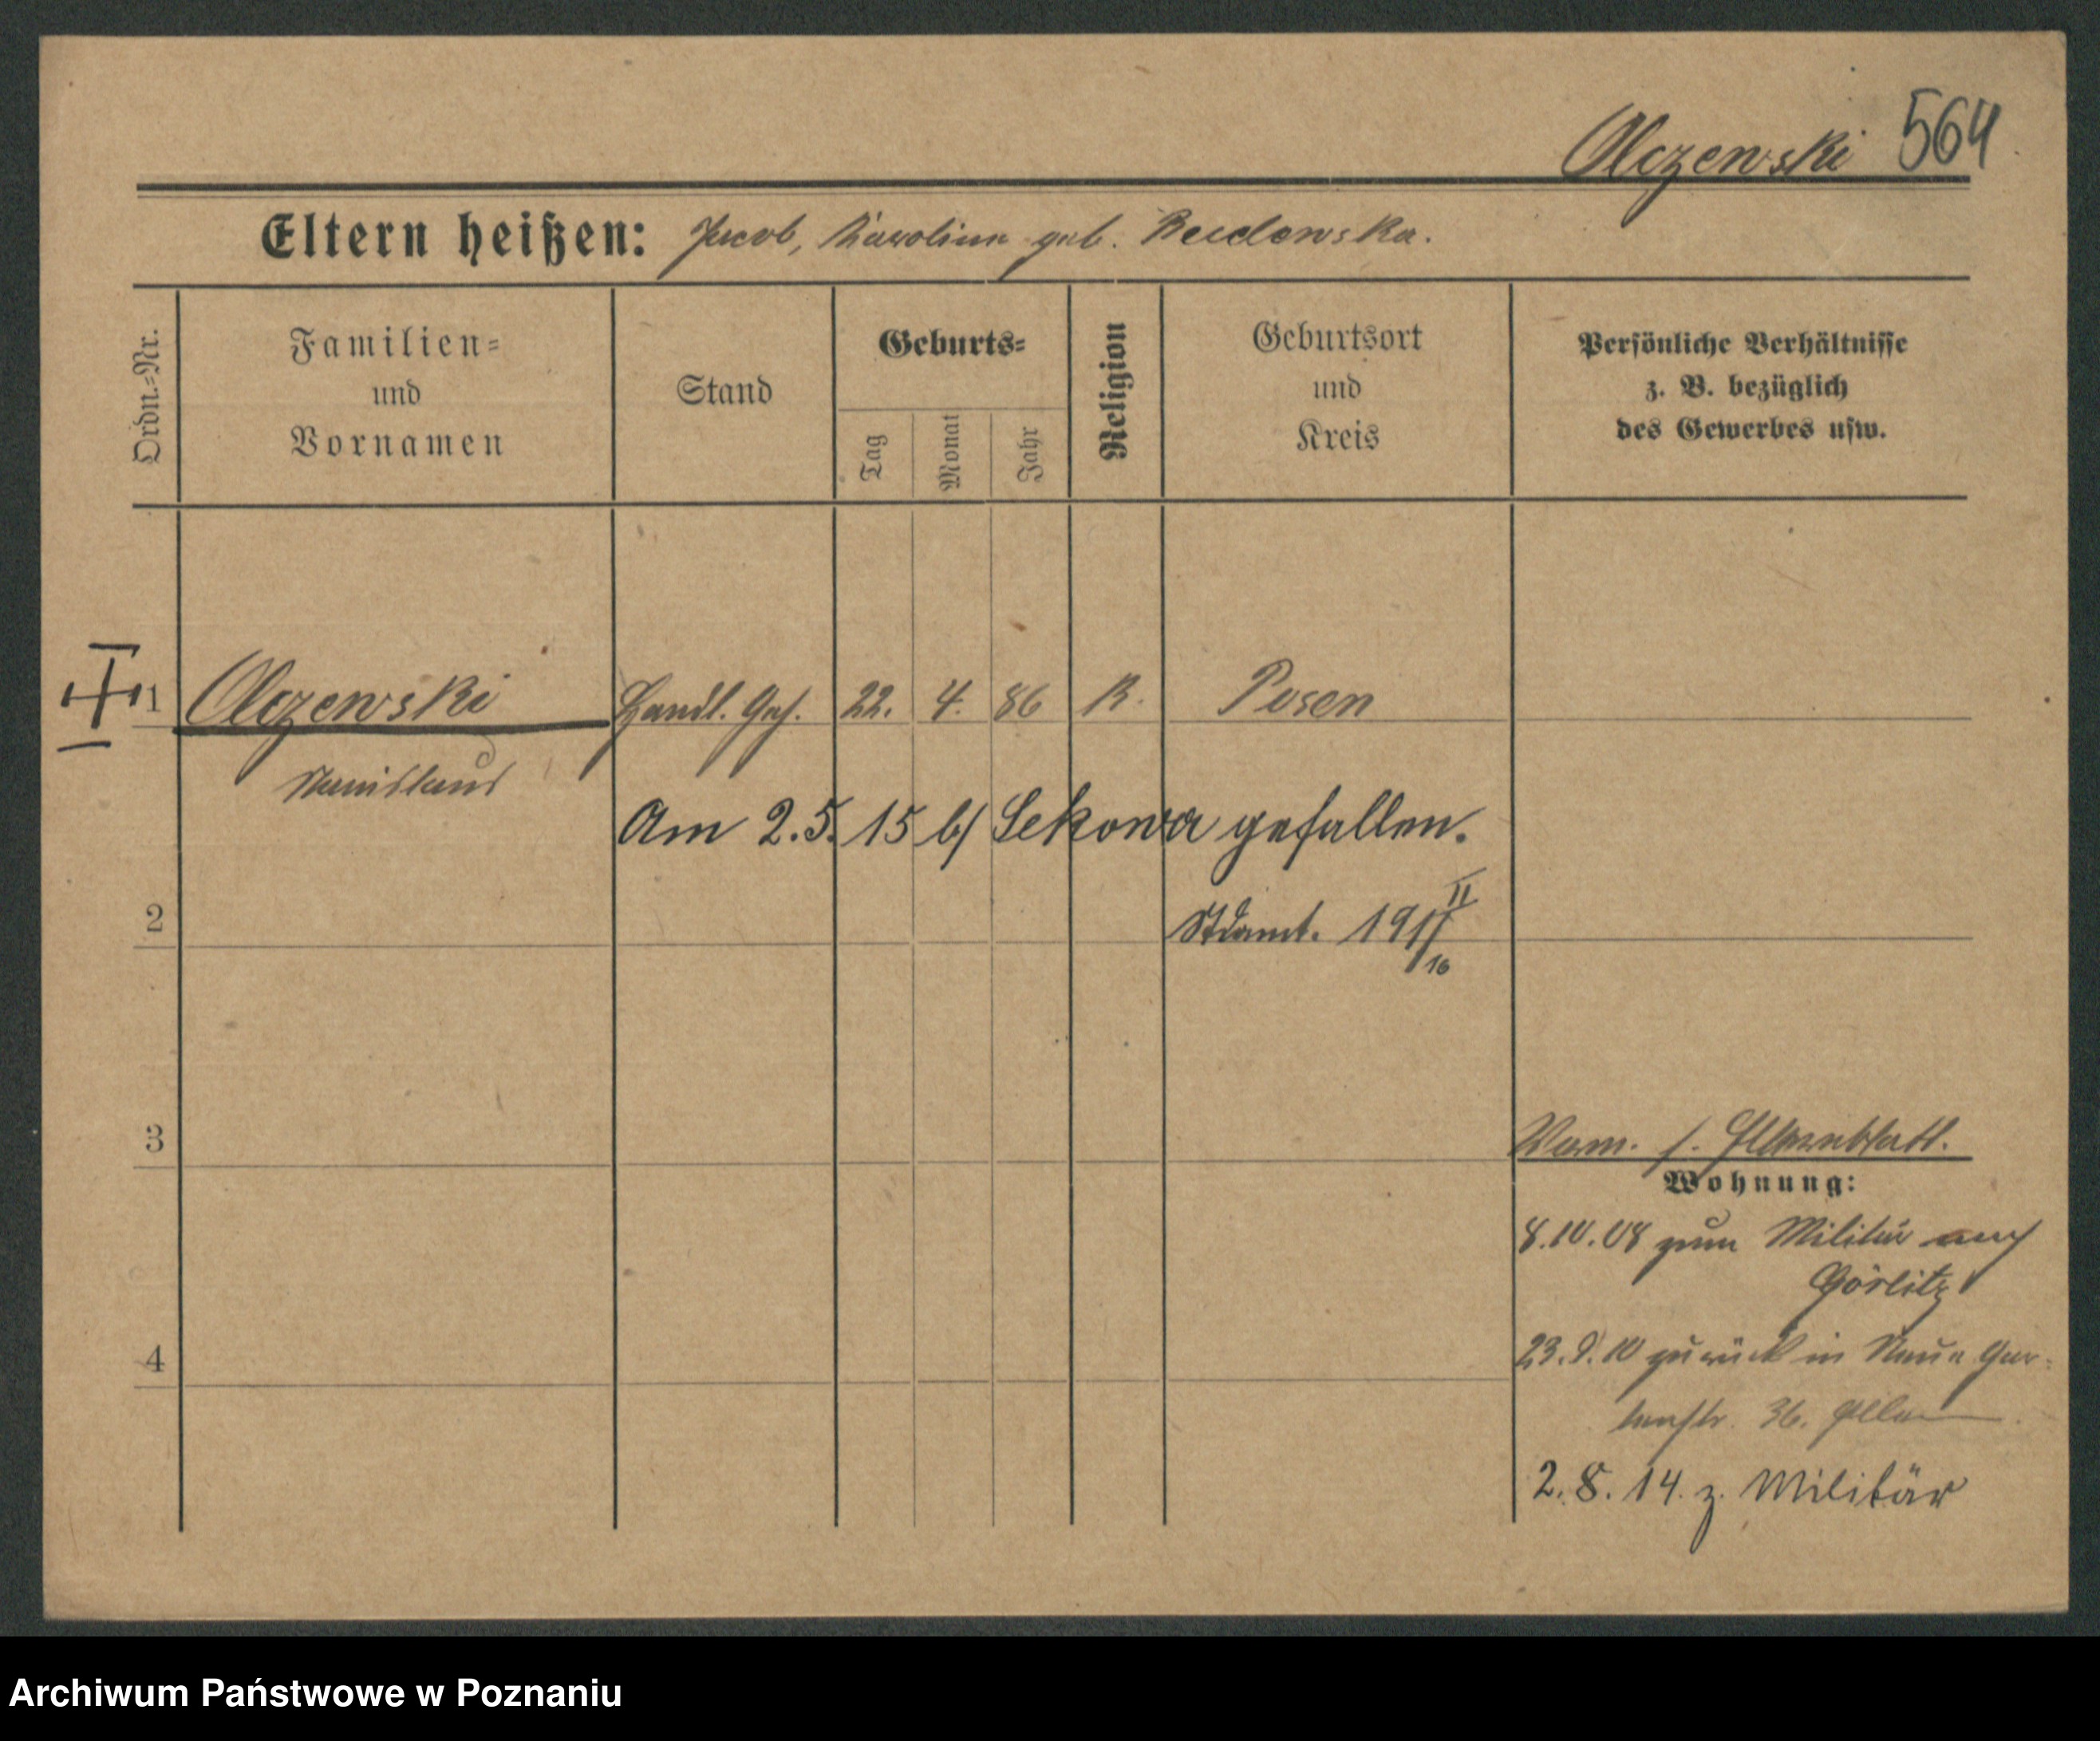 Olczewski 564
Eltern heißen: Jacob, Karolina geb. Budowska.
Ordn.-Nr.
Familien-
und
Vornamen
Stand
Geburts-
Tag
Monat
Jahr
Religion
Geburtsort
und
Kreis
Persönliche Verhältnisse
z. B. bezüglich
des Gewerbes usw.
1 Olczewski Handl. Geh. 22. 4. 86 K. Posen
Stanislaus
Am 2.5.15 b/ Sekowa gefallen.
2 Stdamt. II 16
3 s. Elternblatt.
Wohnung:
8.10.08 zum Militär nach
Görlitz
4 23.9.10 zurück in Neue Gar-
tenstr. 36. Eltern
2.8.14. z. Militär
Archiwum Państwowe w Poznaniu